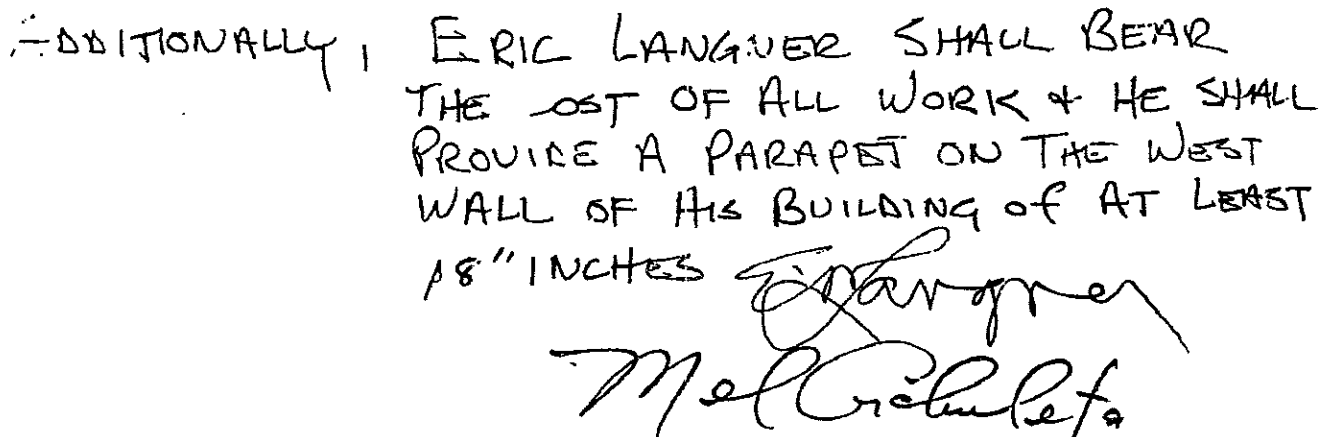 ADDITIONALLY, ERIC LANGNER SHALL BEAR
THE COST OF ALL WORK & HE SHALL
PROVIDE A PARAPET ON THE WEST
WALL OF HIS BUILDING of AT LEAST
18" INCHES Eric Langner
Mel Archuleta